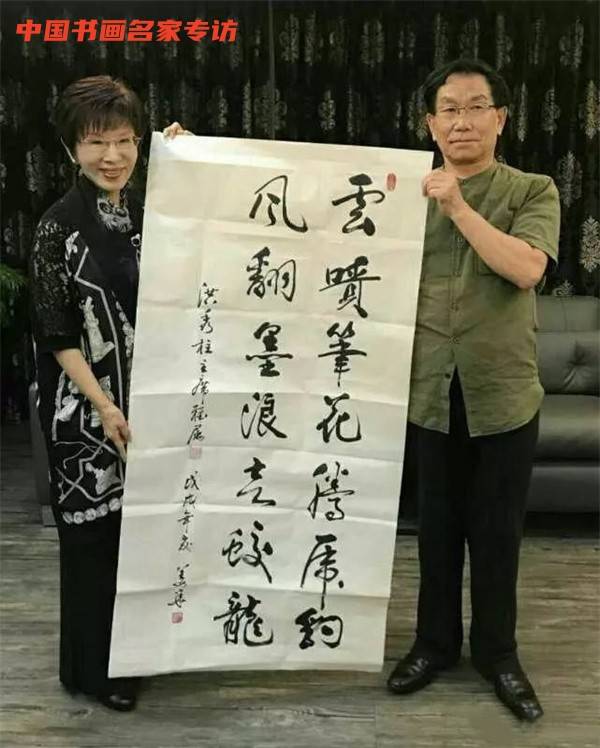 中国书画名家专访
雲噴筆花騰虎豹
風翻墨浪走蛟龍
洪秀柱主席雅屬
戊戌年夏